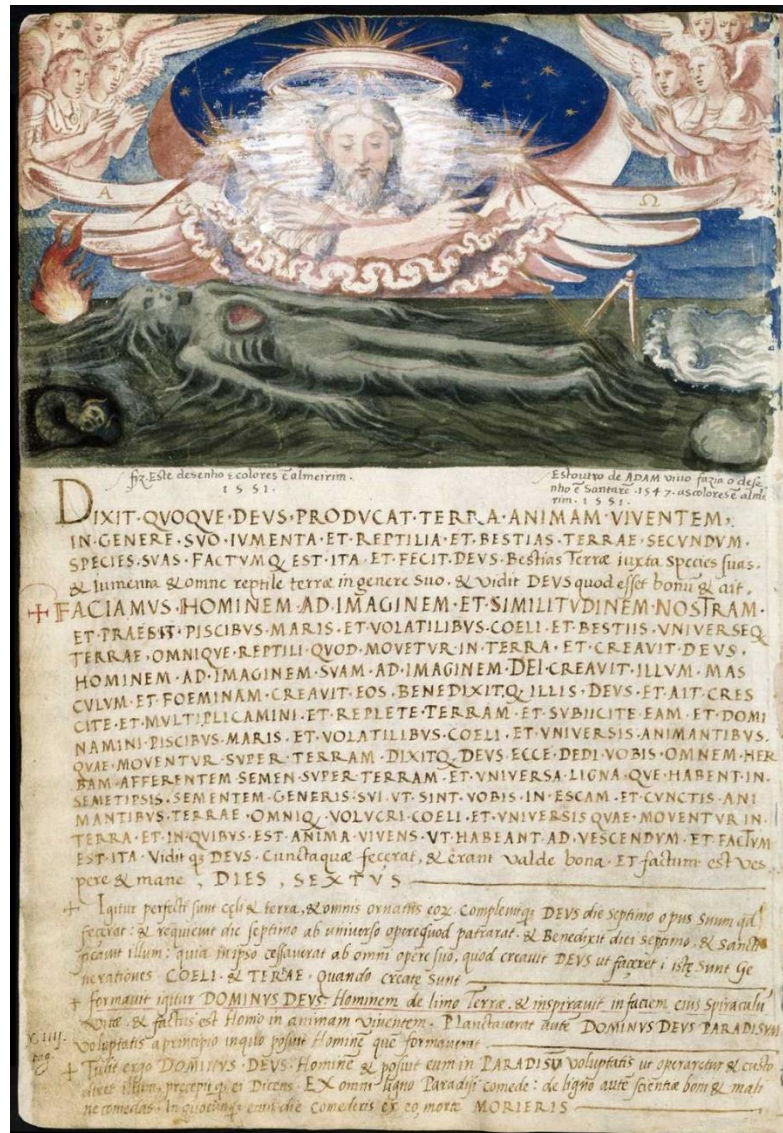 A Ω
fiz. Este desenho e colores ẽ almeirim.
1551.
Estoutro de ADAM vivo fazia o dese
nho ẽ Santarẽ. 1547. as colores ẽ alme
rim. 1551.
DIXIT·QVOQVE·DEVS·PRODVCAT·TERRA·ANIMAM·VIVENTEM,
IN·GENERE·SVO·IVMENTA·ET·REPTILIA·ET·BESTIAS·TERRAE·SECVNDVM·
SPECIES·SVAS·FACTVMQ EST·ITA·ET·FECIT·DEVS·Bestias Terræ iuxta Species suas,
& Iumenta & omne reptile terræ in genere Suo. & vidit DEVS quod esset bonũ & ait,
+ FACIAMVS·HOMINEM·AD·IMAGINEM·ET·SIMILITVDINEM·NOSTRAM·
ET·PRAESIT·PISCIBVS·MARIS·ET·VOLATILIBVS·COELI·ET·BESTIIS·VNIVERSEQ
TERRAE·OMNIQVE·REPTILI·QVOD·MOVETVR·IN·TERRA·ET·CREAVIT·DEVS·
HOMINEM·AD·IMAGINEM·SVAM·AD·IMAGINEM·DEI·CREAVIT·ILLVM·MAS
CVLVM·ET·FOEMINAM·CREAVIT·EOS·BENEDIXITQ·ILLIS·DEVS·ET·AIT·CRES
CITE·ET·MVLTIPLICAMINI·ET·REPLETE·TERRAM·ET·SVBIICITE·EAM·ET·DOMI
NAMINI·PISCIBVS·MARIS·ET·VOLATILIBVS·COELI·ET·VNIVERSIS·ANIMANTIBVS·
QVAE·MOVENTVR·SVPER·TERRAM·DIXITQ·DEVS·ECCE·DEDI·VOBIS·OMNEM·HER
BAM·AFFERENTEM·SEMEN·SVPER·TERRAM·ET·VNIVERSA·LIGNA·QVE·HABENT·IN·
SEMETIPSIS·SEMENTEM·GENERIS·SVI·VT·SINT·VOBIS·IN·ESCAM·ET·CVNCTIS·ANI
MANTIBVS·TERRAE·OMNIQ·VOLVCRI·COELI·ET·VNIVERSIS QVAE·MOVENTVR IN·
TERRA·ET·IN·QVIBVS·EST·ANIMA·VIVENS·VT·HABEANT·AD·VESCENDVM·ET·FACTVM
EST·ITA· Vidit q; DEVS· Cunctaquæ fecerat, & erant valde bona· ET factum est ves
pere & mane, DIES, SEXTVS
+ Igitur perfecti sunt cęli & terra, & omnis ornatus eoꝝ. Complevitq; DEVS die septimo opus Suum qd
fecerat: & requievit die septimo ab universo opere quod patrarat. & Benedixit diei septimo, & Sancti
ficavit illum: quia in ipso cessaverat ab omni opere suo, quod creavit DEVS ut faceret i istę Sunt Ge
nerationes COELI & TERAE, quando create Sunt
+ formavit igitur DOMINVS DEVS· Hominem de limo Terræ. & inspiravit in faciem eius Spiraculũ
Vitæ. & factus est Homo in animam viventem. Planctaverat aute DOMINVS DEVS PARADISVM
voluptatis a principio in quo posuit Hominẽ quẽ formaverat
+ Tulit ergo DOMINVS·DEVS· Hominẽ & posuit eum in PARADISV voluptatis ut operaretur & custo
diret illum, precepitq; ei Dicens. EX omni ligno Paradisi comede: de ligno autẽ scientiæ boni & mali
ne comedas. In quocunq; enim die comederis ex eo, morte MORIERIS